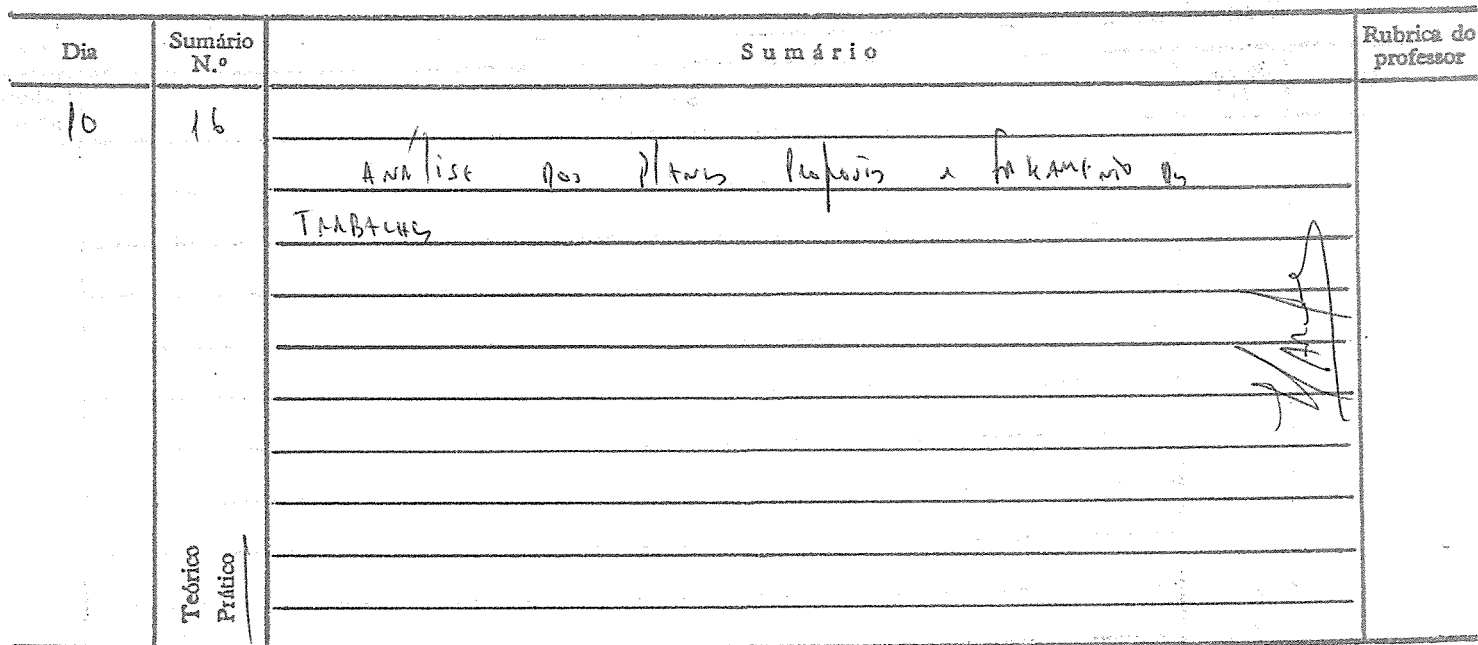 Dia Sumário N.º Sumário Rubrica do professor
10 16
ANÁlise Dos Planos Propostos e
TRABALHOS
Teórico
Prático